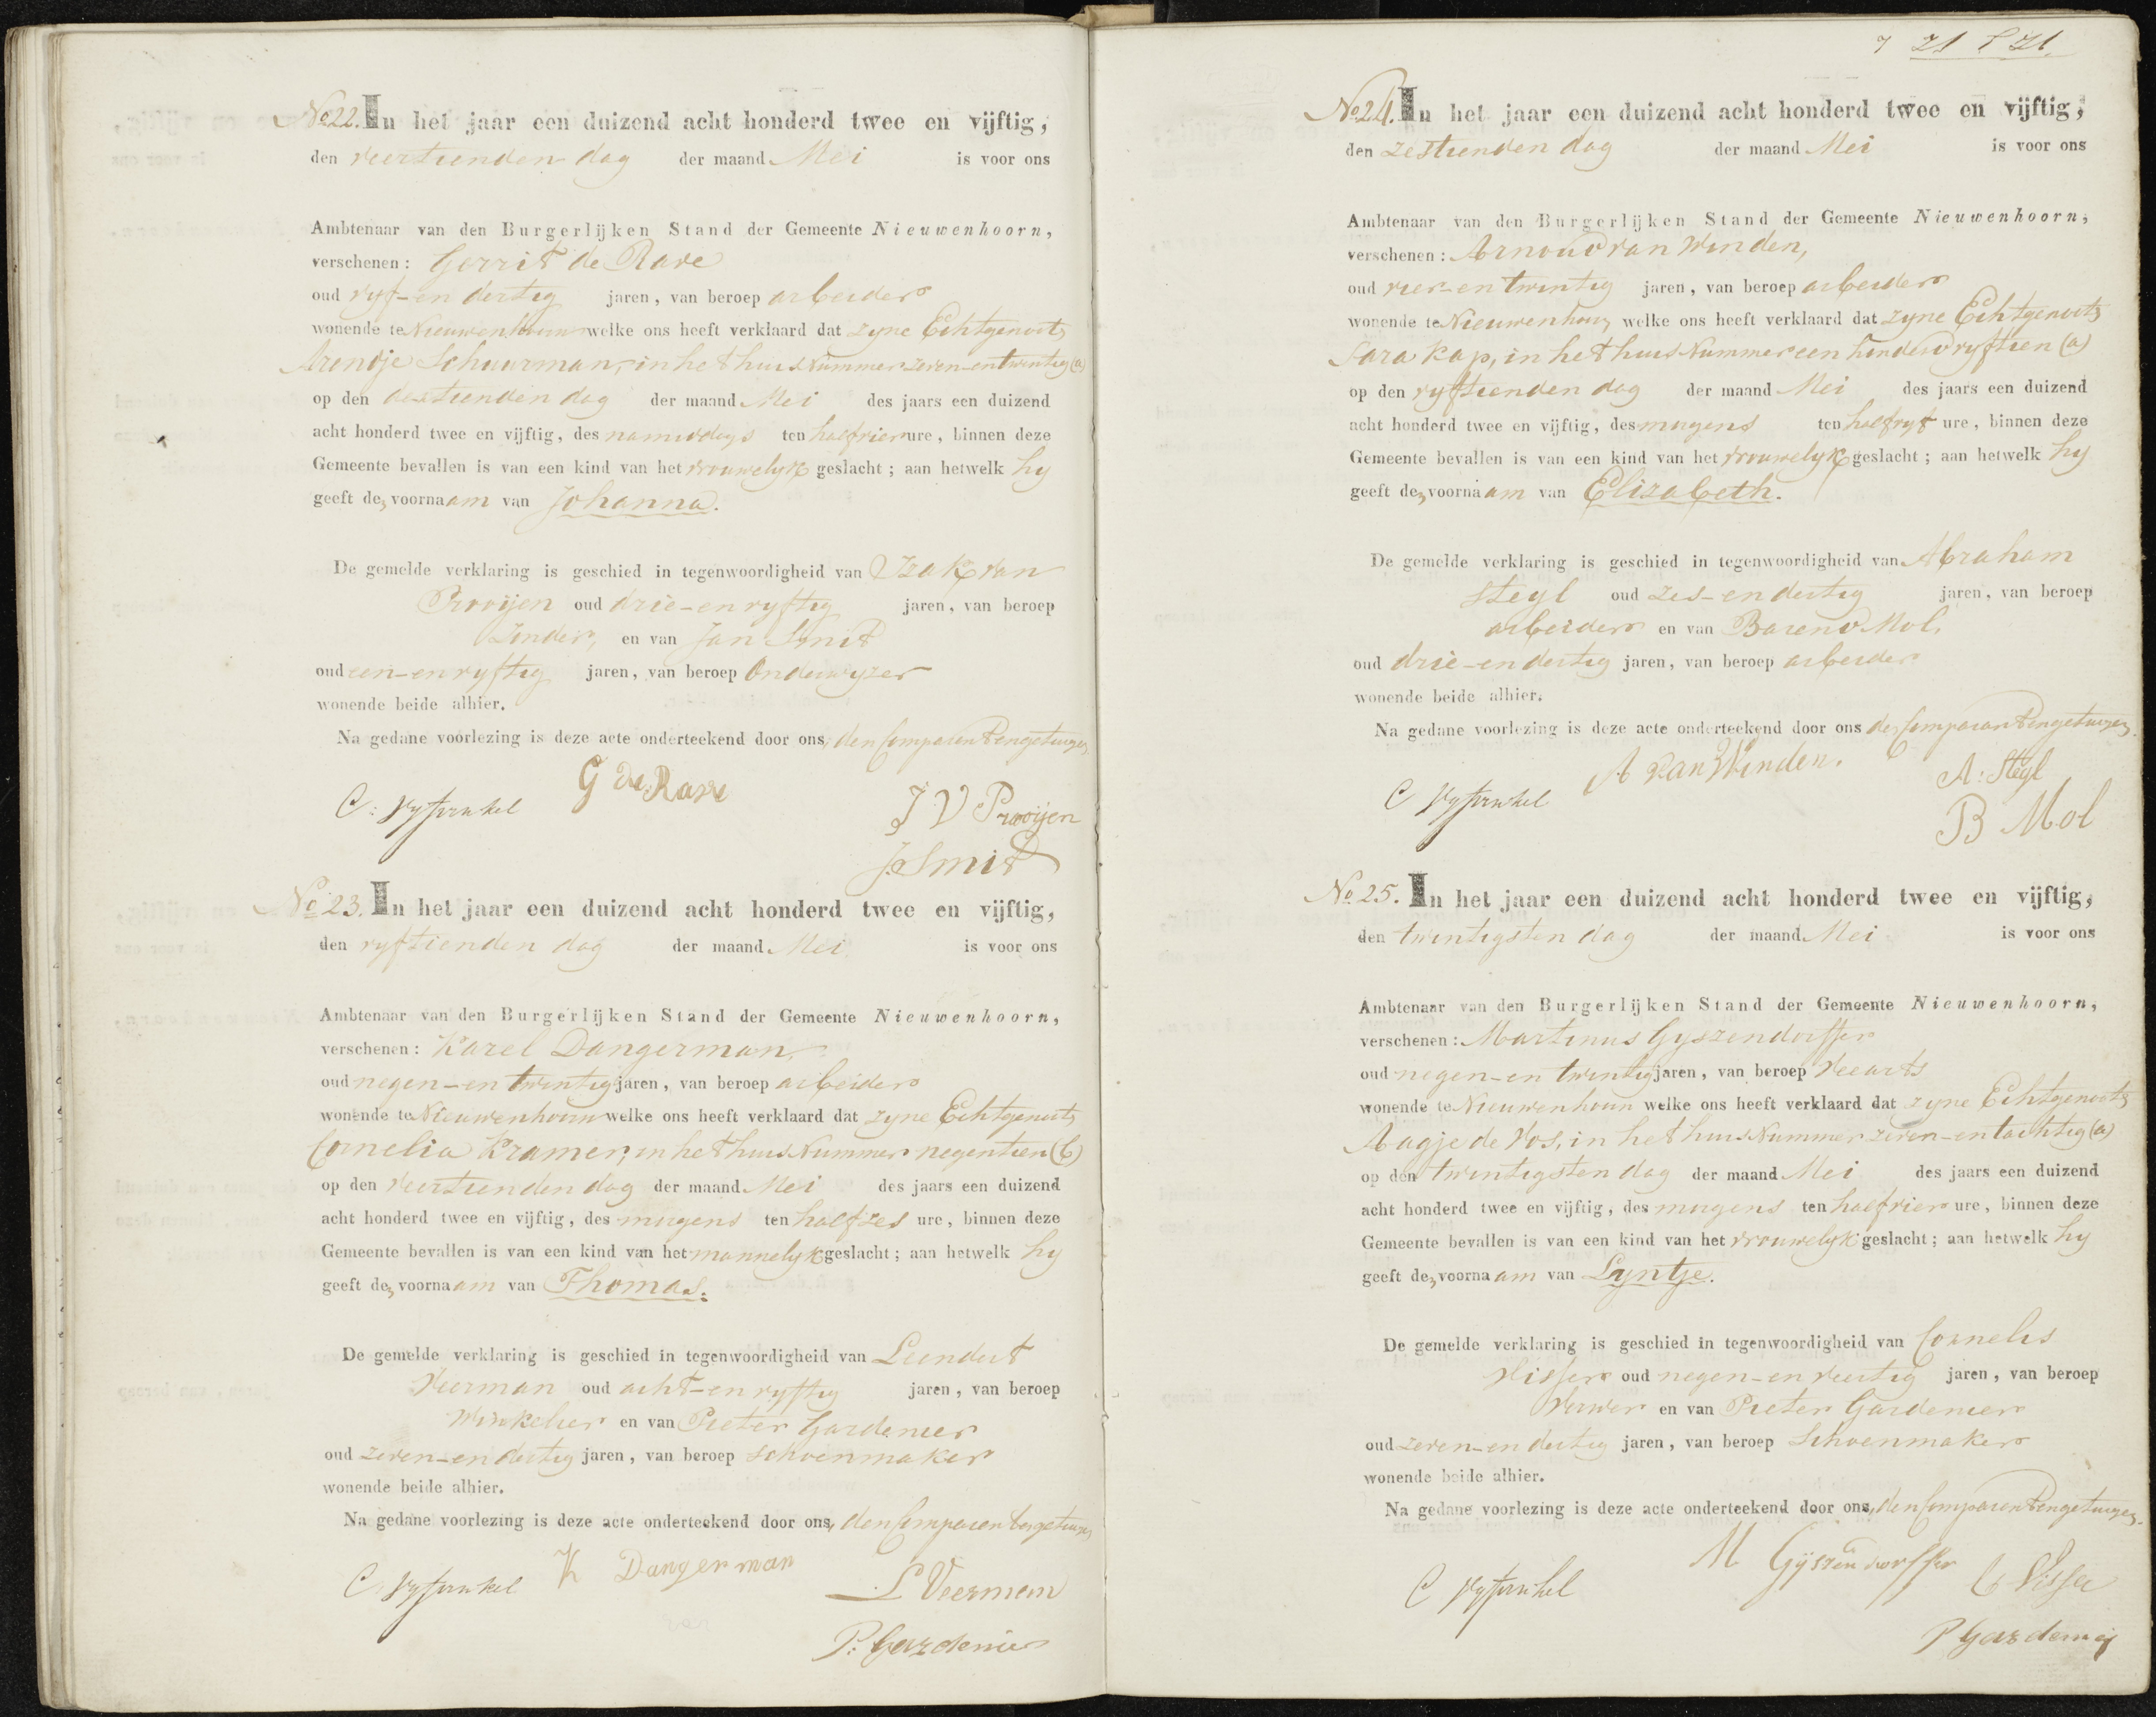 No 22. In het jaar een duizend acht honderd twee en vijftig,
den veertienden dag der maand Mei is voor ons
Ambtenaar van den Burgerlijken Stand der Gemeente Nieuwenhoorn,
verschenen: Gerrit de Rave
oud vyf-en dertig jaren, van beroep arbeider
wonende te Nieuwenhoorn welke ons heeft verklaard dat zyne Echtgenoote
Arendje Schuurman, in het huis Nummer zeven-en twintig (a)
op den dertienden dag der maand Mei des jaars een duizend
acht honderd twee en vijftig, des namiddags ten half vier ure, binnen deze
Gemeente bevallen is van een kind van het vrouwelyk geslacht; aan hetwelk hy
geeft den voornaam van Johanna.
De gemelde verklaring is geschied in tegenwoordigheid van Izak van
Prooijen oud drie-en vyftig jaren, van beroep
en van Jan Smit
oud een-en vyftig jaren, van beroep Onderwyzer
wonende beide alhier.
Na gedane voorlezing is deze acte onderteekend door ons, den Comparant en getuigen.
C: Vyfwinkel G de Rave J V Prooijen
J. Smit
No 23. In het jaar een duizend acht honderd twee en vijftig,
den vyftienden dag der maand Mei is voor ons
Ambtenaar van den Burgerlijken Stand der Gemeente Nieuwenhoorn,
verschenen: Karel Dangerman,
oud negen-en twintig jaren, van beroep arbeider
wonende te Nieuwenhoorn welke ons heeft verklaard dat zyne Echtgenoote
Cornelia Kramer, in het huis Nummer negentien (b)
op den veertienden dag der maand Mei des jaars een duizend
acht honderd twee en vijftig, des morgens ten half zes ure, binnen deze
Gemeente bevallen is van een kind van het mannelyk geslacht; aan hetwelk hy
geeft den voornaam van Thomas.
De gemelde verklaring is geschied in tegenwoordigheid van Leendert
Veerman oud acht-en vyftig jaren, van beroep
Winkelier en van Pieter Gardenier
oud zeven-en dertig jaren, van beroep schoenmaker
wonende beide alhier.
Na gedane voorlezing is deze acte onderteekend door ons, den Comparant en getuigen
C. Vyfwinkel K Dangerman L Veerman
P. Gardenier
21
No 24. In het jaar een duizend acht honderd twee en vijftig,
den zestienden dag der maand Mei is voor ons
Ambtenaar van den Burgerlijken Stand der Gemeente Nieuwenhoorn,
verschenen: Arnoud van Winden,
oud vier-en twintig jaren, van beroep arbeider
wonende te Nieuwenhoorn welke ons heeft verklaard dat zyne Echtgenoote
Sara Kap, in het huis Nummer een honderd vyftien (a)
op den vyftienden dag der maand Mei des jaars een duizend
acht honderd twee en vijftig, des morgens ten half vyf ure, binnen deze
Gemeente bevallen is van een kind van het vrouwelyk geslacht; aan hetwelk hy
geeft den voornaam van Elizabeth.
De gemelde verklaring is geschied in tegenwoordigheid van Abraham
Steyl oud zes-en dertig jaren, van beroep
arbeider en van Barend Mol,
oud drie-en dertig jaren, van beroep arbeider
wonende beide alhier.
Na gedane voorlezing is deze acte onderteekend door ons den Comparant en getuigen.
C Vyfwinkel A van Winden. A: Steyl
B Mol
No 25. In het jaar een duizend acht honderd twee en vijftig,
den twintigsten dag der maand Mei is voor ons
Ambtenaar van den Burgerlijken Stand der Gemeente Nieuwenhoorn,
verschenen: Martinus Gyszendorffer
oud negen-en twintig jaren, van beroep Veearts
wonende te Nieuwenhoorn welke ons heeft verklaard dat zyne Echtgenoote
Aagje de Vos, in het huis Nummer zeven-en tachtig (a)
op den twintigsten dag der maand Mei des jaars een duizend
acht honderd twee en vijftig, des morgens ten half vier ure, binnen deze
Gemeente bevallen is van een kind van het vrouwelyk geslacht; aan hetwelk hy
geeft den voornaam van Lyntje.
De gemelde verklaring is geschied in tegenwoordigheid van Cornelis
Visser oud negen-en veertig jaren, van beroep
Verwer en van Pieter Gardenier
oud zeven-en dertig jaren, van beroep Schoenmaker
wonende beide alhier.
Na gedane voorlezing is deze acte onderteekend door ons, den Comparant en getuigen.
C Vyfwinkel M Gijszendorffer C Visser
P Gardenier